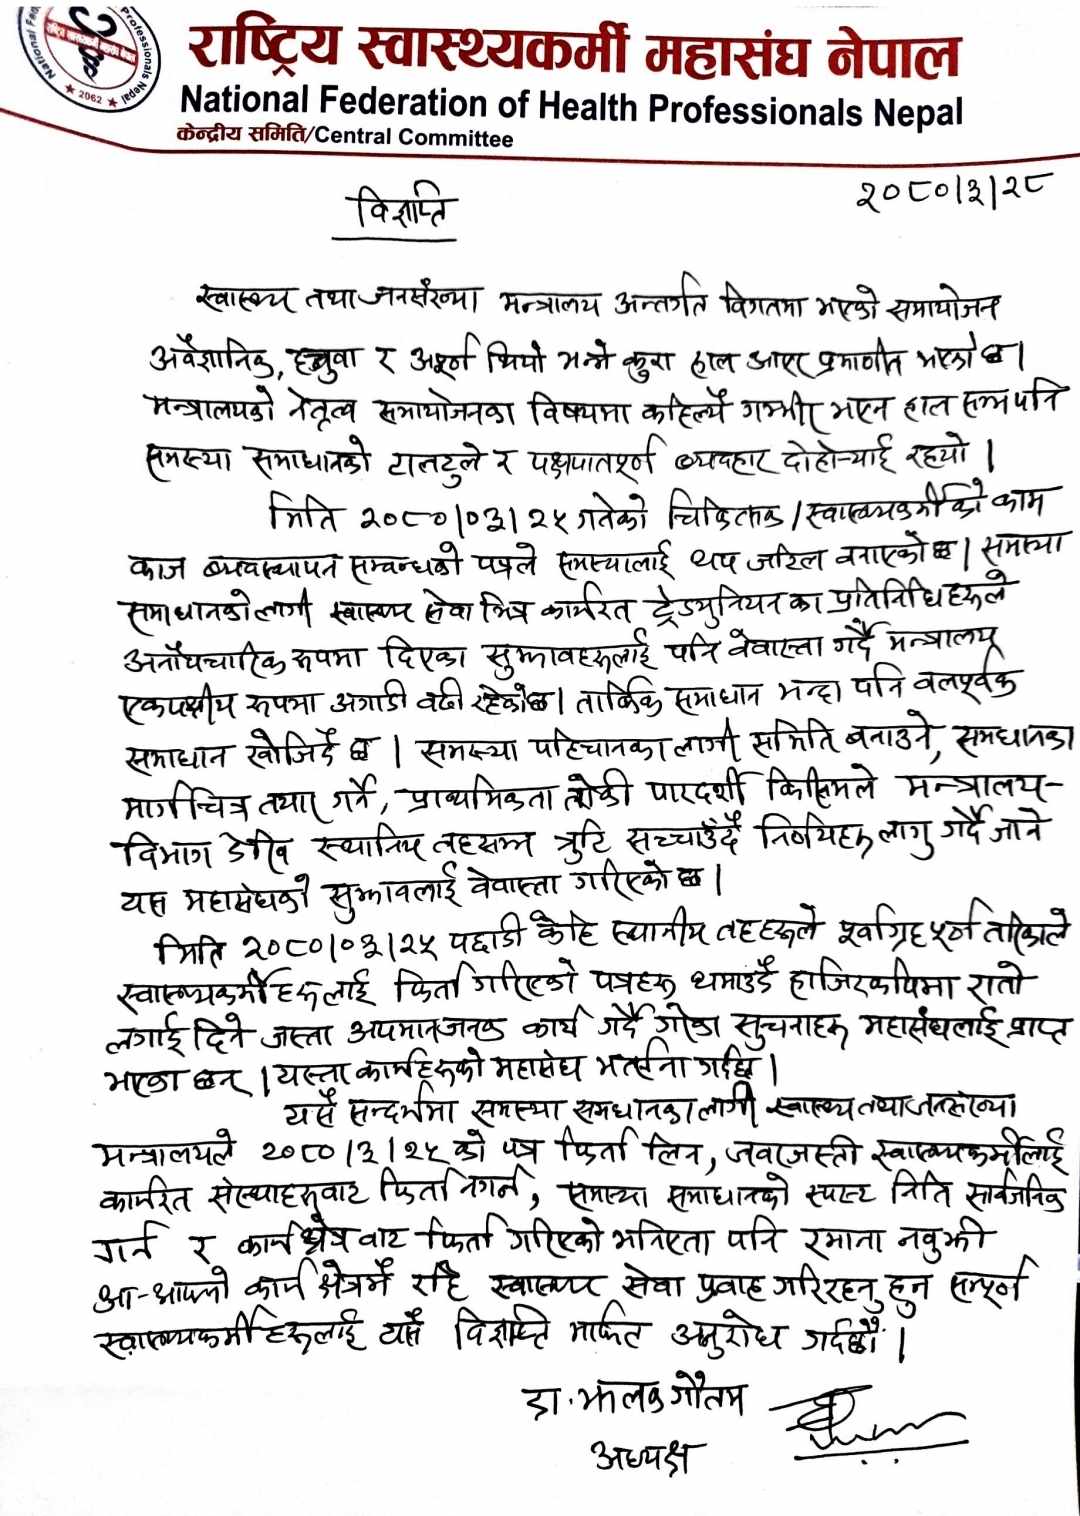 National Fed
Professionals Nepal
2062
राष्ट्रिय स्वास्थ्यकर्मी महासंघ नेपाल
National Federation of Health Professionals Nepal
केन्द्रीय समिति/Central Committee
२०८०।३।२८
विज्ञप्ति
स्वास्थ्य तथा जनसंख्या मन्त्रालय अन्तर्गत विगतमा भएको समायोजन
अवैज्ञानिक, हचुवा र अपूर्ण थियो भन्ने कुरा हाल आएर प्रमाणीत भएको छ।
मन्त्रालयको नेतृत्व समायोजनका विषयमा कहिल्यै गम्भीर भएन हाल सम्म पनि
समस्या समाधानको टालटुले र पक्षपातपूर्ण व्यवहार दोहोर्‍याई रहयो ।
मिति २०८०।०३।२५ गतेको चिकित्सक/स्वास्थ्यकर्मीको काम
काज व्यवस्थापन सम्वन्धको पत्रले समस्यालाई थप जटिल बनाएको छ। समस्या
समाधानको लागी स्वास्थ्य सेवा भित्र कार्यरत ट्रेडयुनियन का प्रतिनिधिहरूले
अनौपचारिक रुपमा दिएका सुझावहरूलाई पनि वेवास्ता गर्दै मन्त्रालय
एकपक्षीय रुपमा अगाडी वढी रहेकोछ। तार्किक समाधान भन्दा पनि वलपूर्वक
समाधान खोजिदै छ । समस्या पहिचानका लागी समिति बनाउने, समधानका
मार्गचित्र तयार गर्ने, प्राथमिकता तोकी पारदर्शी किसिमले मन्त्रालय-
विभाग देखि स्थानिय तहसम्म त्रुटि सच्चाउँदै निर्णयहरू लागु गर्दै जाने
यस महासंघको सुझावलाई वेवास्ता गरिएको छ।
मिति २०८०।०३।२५ पछाडी केहि स्थानीय तहहरूले पूर्वाग्रहपूर्ण तरिकाले
स्वास्थ्यकर्मीहरूलाई फिर्ता गरिएको पत्रहरू थमाउँदै हाजिरकपिमा रातो
लगाई दिने जस्ता अपमानजनक कार्य गर्दै गरेका सुचनाहरू महासंघलाई प्राप्त
भएका छन् । यस्ता कार्यहरूको महासंघ भर्त्सना गर्दछ।
यसै सन्दर्भमा समस्या समधानका लागी स्वास्थ्य तथा जनसंख्या
मन्त्रालयले २०८०।३।२५ को पत्र फिर्ता लिन, जवरजस्ती स्वास्थ्यकर्मीलाई
कार्यरत संस्थाहरूवाट फिर्ता नगर्न, समस्या समाधानको स्पस्ट निति सार्वजनिक
गर्न र कार्य क्षेत्र वाट फिर्ता गरिएको भनिएता पनि रमाना नवुझी
आ-आफ्नो कार्य क्षेत्रमै रहि स्वास्थ्य सेवा प्रवाह गरिरहनु हुन सम्पूर्ण
स्वास्थ्यकर्मीहरूलाई यसै विज्ञप्ति मार्फत अनुरोध गर्दछौं ।
डा. झलक गौतम
अध्यक्ष